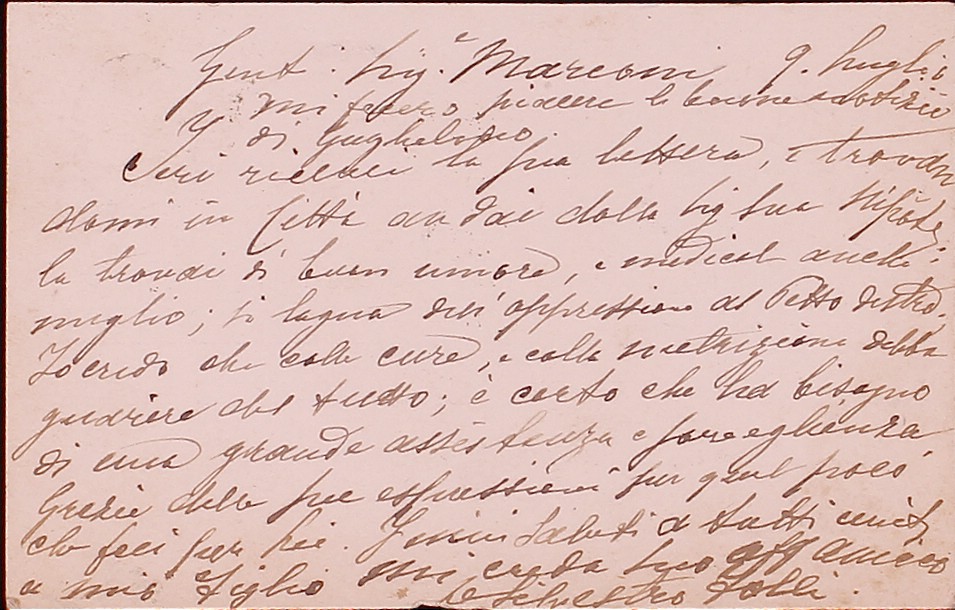 Gent. Sig.e Marconi 9. Luglio
mi fecero piacere le buone notizie
di Guglielmo.
Ieri ricevei la sua lettera, e trovan
domi in Città andai dalla Sig sua Nipote,
la trovai di buon umore, e anche
meglio; si lagna dell'oppressione al Petto destro,
Io credo che colle cure, e colla nutrizione debba
guarire del tutto; è certo che ha bisogno
di una grande assistenza e sorveglienza
Grazie delle sue espressioni per quel poco
che feci per Lei. I miei saluti a tutti uniti
a mio Figlio mi creda suo aff amico
Silvestro